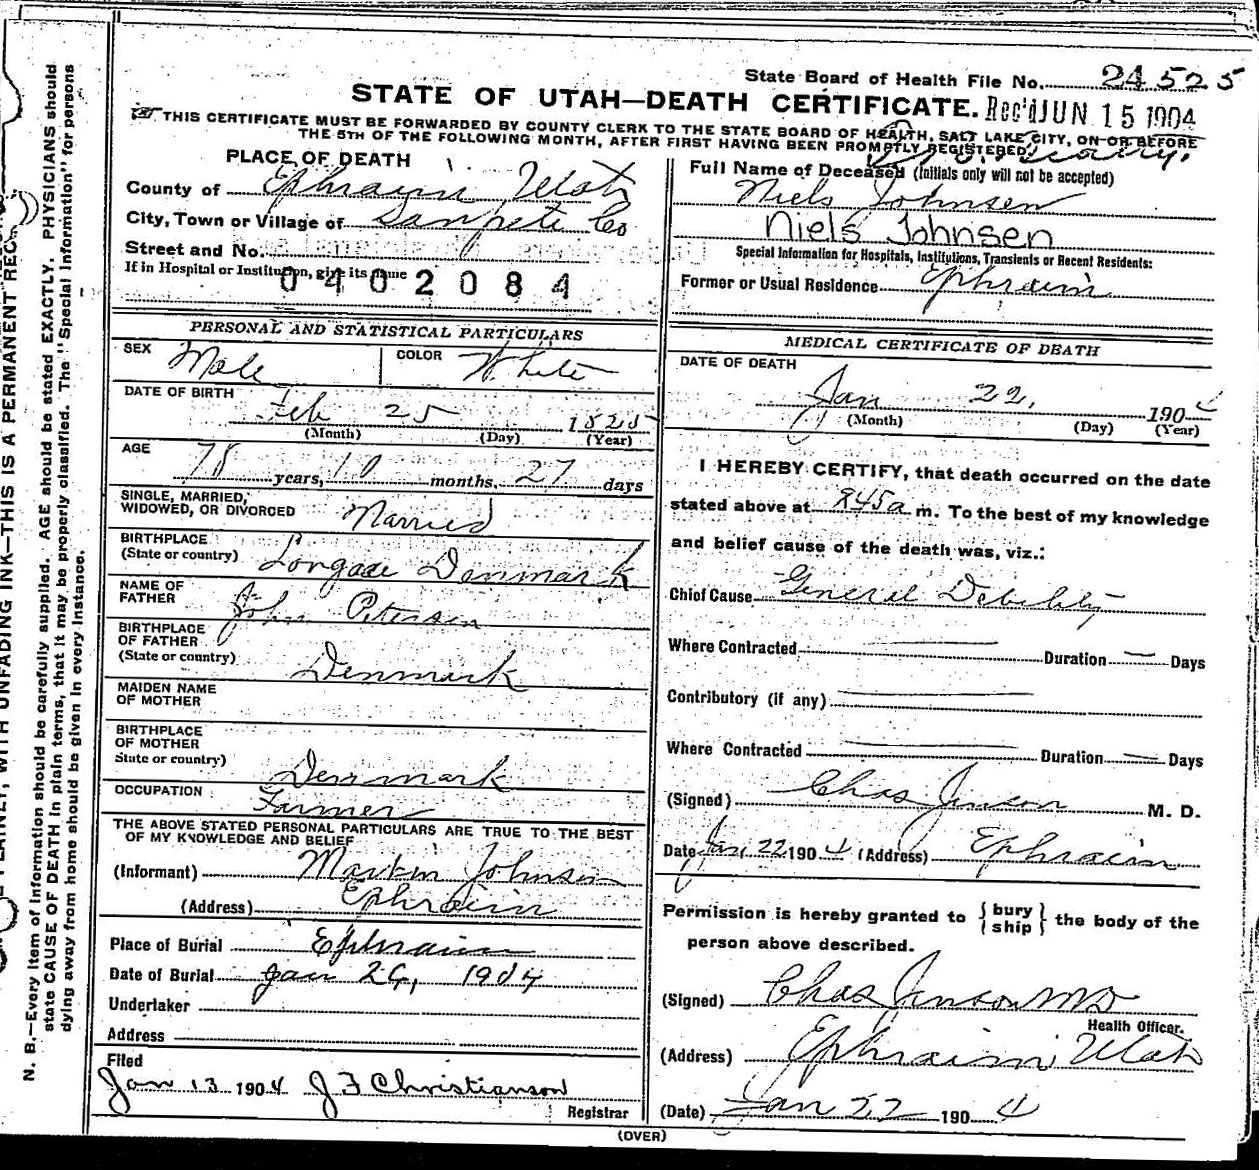 State Board of Health File No. 24525
STATE OF UTAH—DEATH CERTIFICATE. Rec'd JUN 15 1904
THIS CERTIFICATE MUST BE FORWARDED BY COUNTY CLERK TO THE STATE BOARD OF HEALTH, SALT LAKE CITY, ON OR BEFORE
THE 5TH OF THE FOLLOWING MONTH, AFTER FIRST HAVING BEEN PROMPTLY REGISTERED.
PLACE OF DEATH
County of Ephraim Utah
City, Town or Village of Sanpete Co
Street and No.
If in Hospital or Institution, give its name
0402084
PERSONAL AND STATISTICAL PARTICULARS
SEX Male COLOR White
DATE OF BIRTH
Feb 25 1825
(Month) (Day) (Year)
AGE
78 years, 10 months, 27 days
SINGLE, MARRIED,
WIDOWED, OR DIVORCED Married
BIRTHPLACE
(State or country) Denmark
NAME OF
FATHER John Peterson
BIRTHPLACE
OF FATHER
(State or country) Denmark
MAIDEN NAME
OF MOTHER
BIRTHPLACE
OF MOTHER
State or country) Denmark
OCCUPATION Farmer
THE ABOVE STATED PERSONAL PARTICULARS ARE TRUE TO THE BEST
OF MY KNOWLEDGE AND BELIEF
(Informant) Martin Johnsen
(Address) Ephraim
Place of Burial Ephraim
Date of Burial Jan 26, 1904
Undertaker
Address
Filed
Jan 13 1904 J F Christianson
Registrar
Full Name of Deceased (Initials only will not be accepted)
Niels Johnsen
Niels Johnsen
Special Information for Hospitals, Institutions, Transients or Recent Residents:
Former or Usual Residence Ephraim
MEDICAL CERTIFICATE OF DEATH
DATE OF DEATH
Jan 22, 1904
(Month) (Day) (Year)
I HEREBY CERTIFY, that death occurred on the date
stated above at 845 a m. To the best of my knowledge
and belief cause of the death was, viz.:
Chief Cause General Debility
Where Contracted — Duration — Days
Contributory (if any) —
Where Contracted — Duration — Days
(Signed) Chas Jenson M. D.
Date Jan 22 1904 (Address) Ephraim
Permission is hereby granted to { bury ship } the body of the
person above described.
(Signed) Chas Jenson MD
Health Officer.
(Address) Ephraim Utah
(Date) Jan 22 1904
(OVER)
N. B.—Every item of information should be carefully supplied. AGE should be stated EXACTLY. PHYSICIANS should
state CAUSE OF DEATH in plain terms, that it may be properly classified. The "Special Information" for persons
dying away from home should be given in every instance.
PLAINLY, WITH UNFADING INK—THIS IS A PERMANENT REC